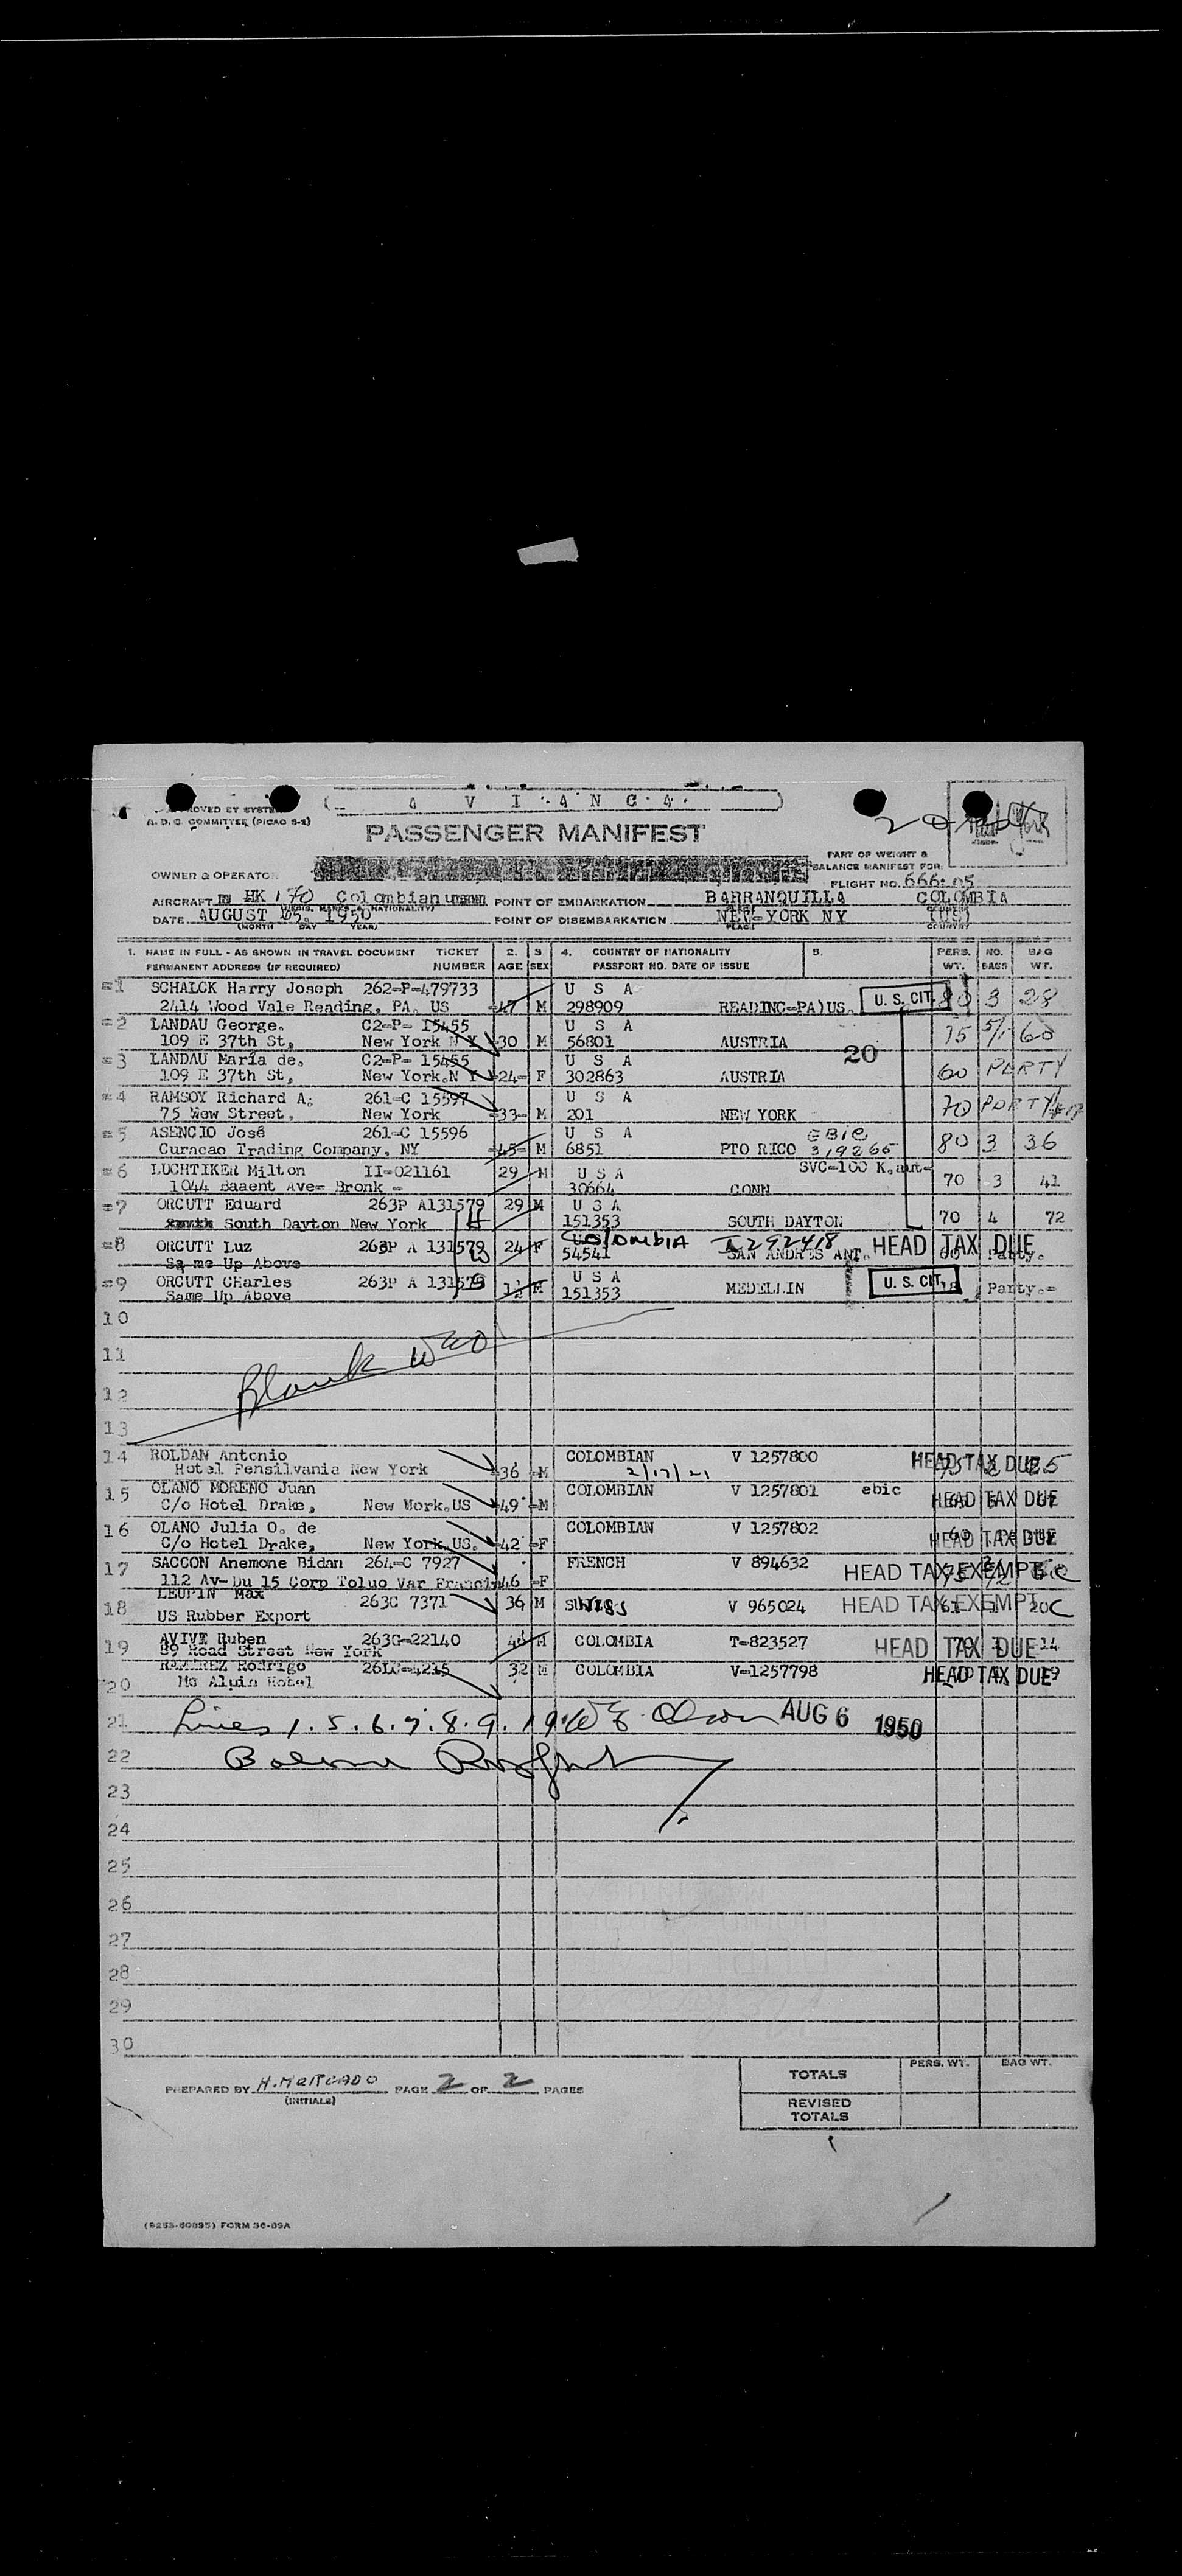 A V I A N C A
A. D. C. COMMITTEE (PICAO S-2)
PASSENGER MANIFEST
PART OF WEIGHT &
BALANCE MANIFEST FOR
OWNER & OPERATOR
FLIGHT NO. 666:05
AIRCRAFT HK 170 Colombian POINT OF EMBARKATION BARRANQUILLA COLOMBIA
DATE AUGUST 05. 1950 POINT OF DISEMBARKATION NEW-YORK NY
(MONTH DAY YEAR) PLACE COUNTRY
1. NAME IN FULL - AS SHOWN IN TRAVEL DOCUMENT TICKET 2. 3 4. COUNTRY OF NATIONALITY PERS. NO. BAG
PERMANENT ADDRESS (IF REQUIRED) NUMBER AGE SEX PASSPORT NO. DATE OF ISSUE WT. BAGS WT.
=1 SCHALCK Harry Joseph 262-P-479733 U S A
2414 Wood Vale Reading, PA. US 47 M 298909 READING-PA)US. U. S. CIT. 80 3 28
=2 LANDAU George, C2-P- 15455 U S A
109 E 37th St, New York N Y 30 M 56801 AUSTRIA 75
20
=3 LANDAU María de, C2-P- 15455 U S A
109 E 37th St, New York.N Y 24- F 302863 AUSTRIA 60 PARTY
=4 RAMSOY Richard A; 261-C 15597 U S A
75 New Street, New York 33- M 201 NEW YORK 70 PARTY
=5 ASENCIO José 261-C 15596 U S A EBIC
Curacao Trading Company, NY 45- M 6851 PTO RICO 319265 80 3 36
=6 LUCHTIKER Milton II-021161 29 M U S A SVC-100 K.aut-
1044 Baaent Ave= Bronk = 30664 CONN 70 3 41
=7 ORCUTT Eduard 263P A131579 29 M U S A
South Dayton New York 151353 SOUTH DAYTON 70 4 72
=8 ORCUTT Luz 263P A 131579 24 F COLOMBIA I292418 HEAD TAX DUE
Sa me Up Above 54541 SAN ANDRES ANT. Party.
=9 ORCUTT CHarles 263P A 131579 M U S A U. S. CIT.
Same Up Above 151353 MEDELLIN Party.=
10
11
Blank
12
13
14 ROLDAN Antonio COLOMBIAN V 1257800 HEAD TAX DUE
Hotel Pensilvania New York 36 -M
15 OLANO MORENO Juan COLOMBIAN V 1257801 ebic HEAD TAX DUE
C/o Hotel Drake, New Work.US 49 -M
16 OLANO Julia O. de COLOMBIAN V 1257802 HEAD TAX DUE
C/o Hotel Drake, New York.US. 42 -F
17 SACCON Anemone Bidan 264-C 7927 FRENCH V 894632 HEAD TAX EXEMPT
112 Av-Du 15 Corp Toluo Var 46 -F
18 LEUPIN Max 263C 7371 36 M SWISS V 965024 HEAD TAX EXEMPT
US Rubber Export
19 AVIVI Ruben 263C-22140 COLOMBIA T-823527 HEAD TAX DUE
89 Road Street New York
20 RAMIREZ Rodrigo 32 M COLOMBIA V-1257798 HEAD TAX DUE
Mc Alpin Hotel
21 Lines 1. 5. 6. 7. 8. 9. 19. Olson AUG 6 1950
22
23
24
25
26
27
28
29
30
PERS. WT. BAG WT.
TOTALS
PREPARED BY H. MERCADO PAGE 2 OF 2 PAGES
(INITIALS)
REVISED
TOTALS
FORM 36-89A